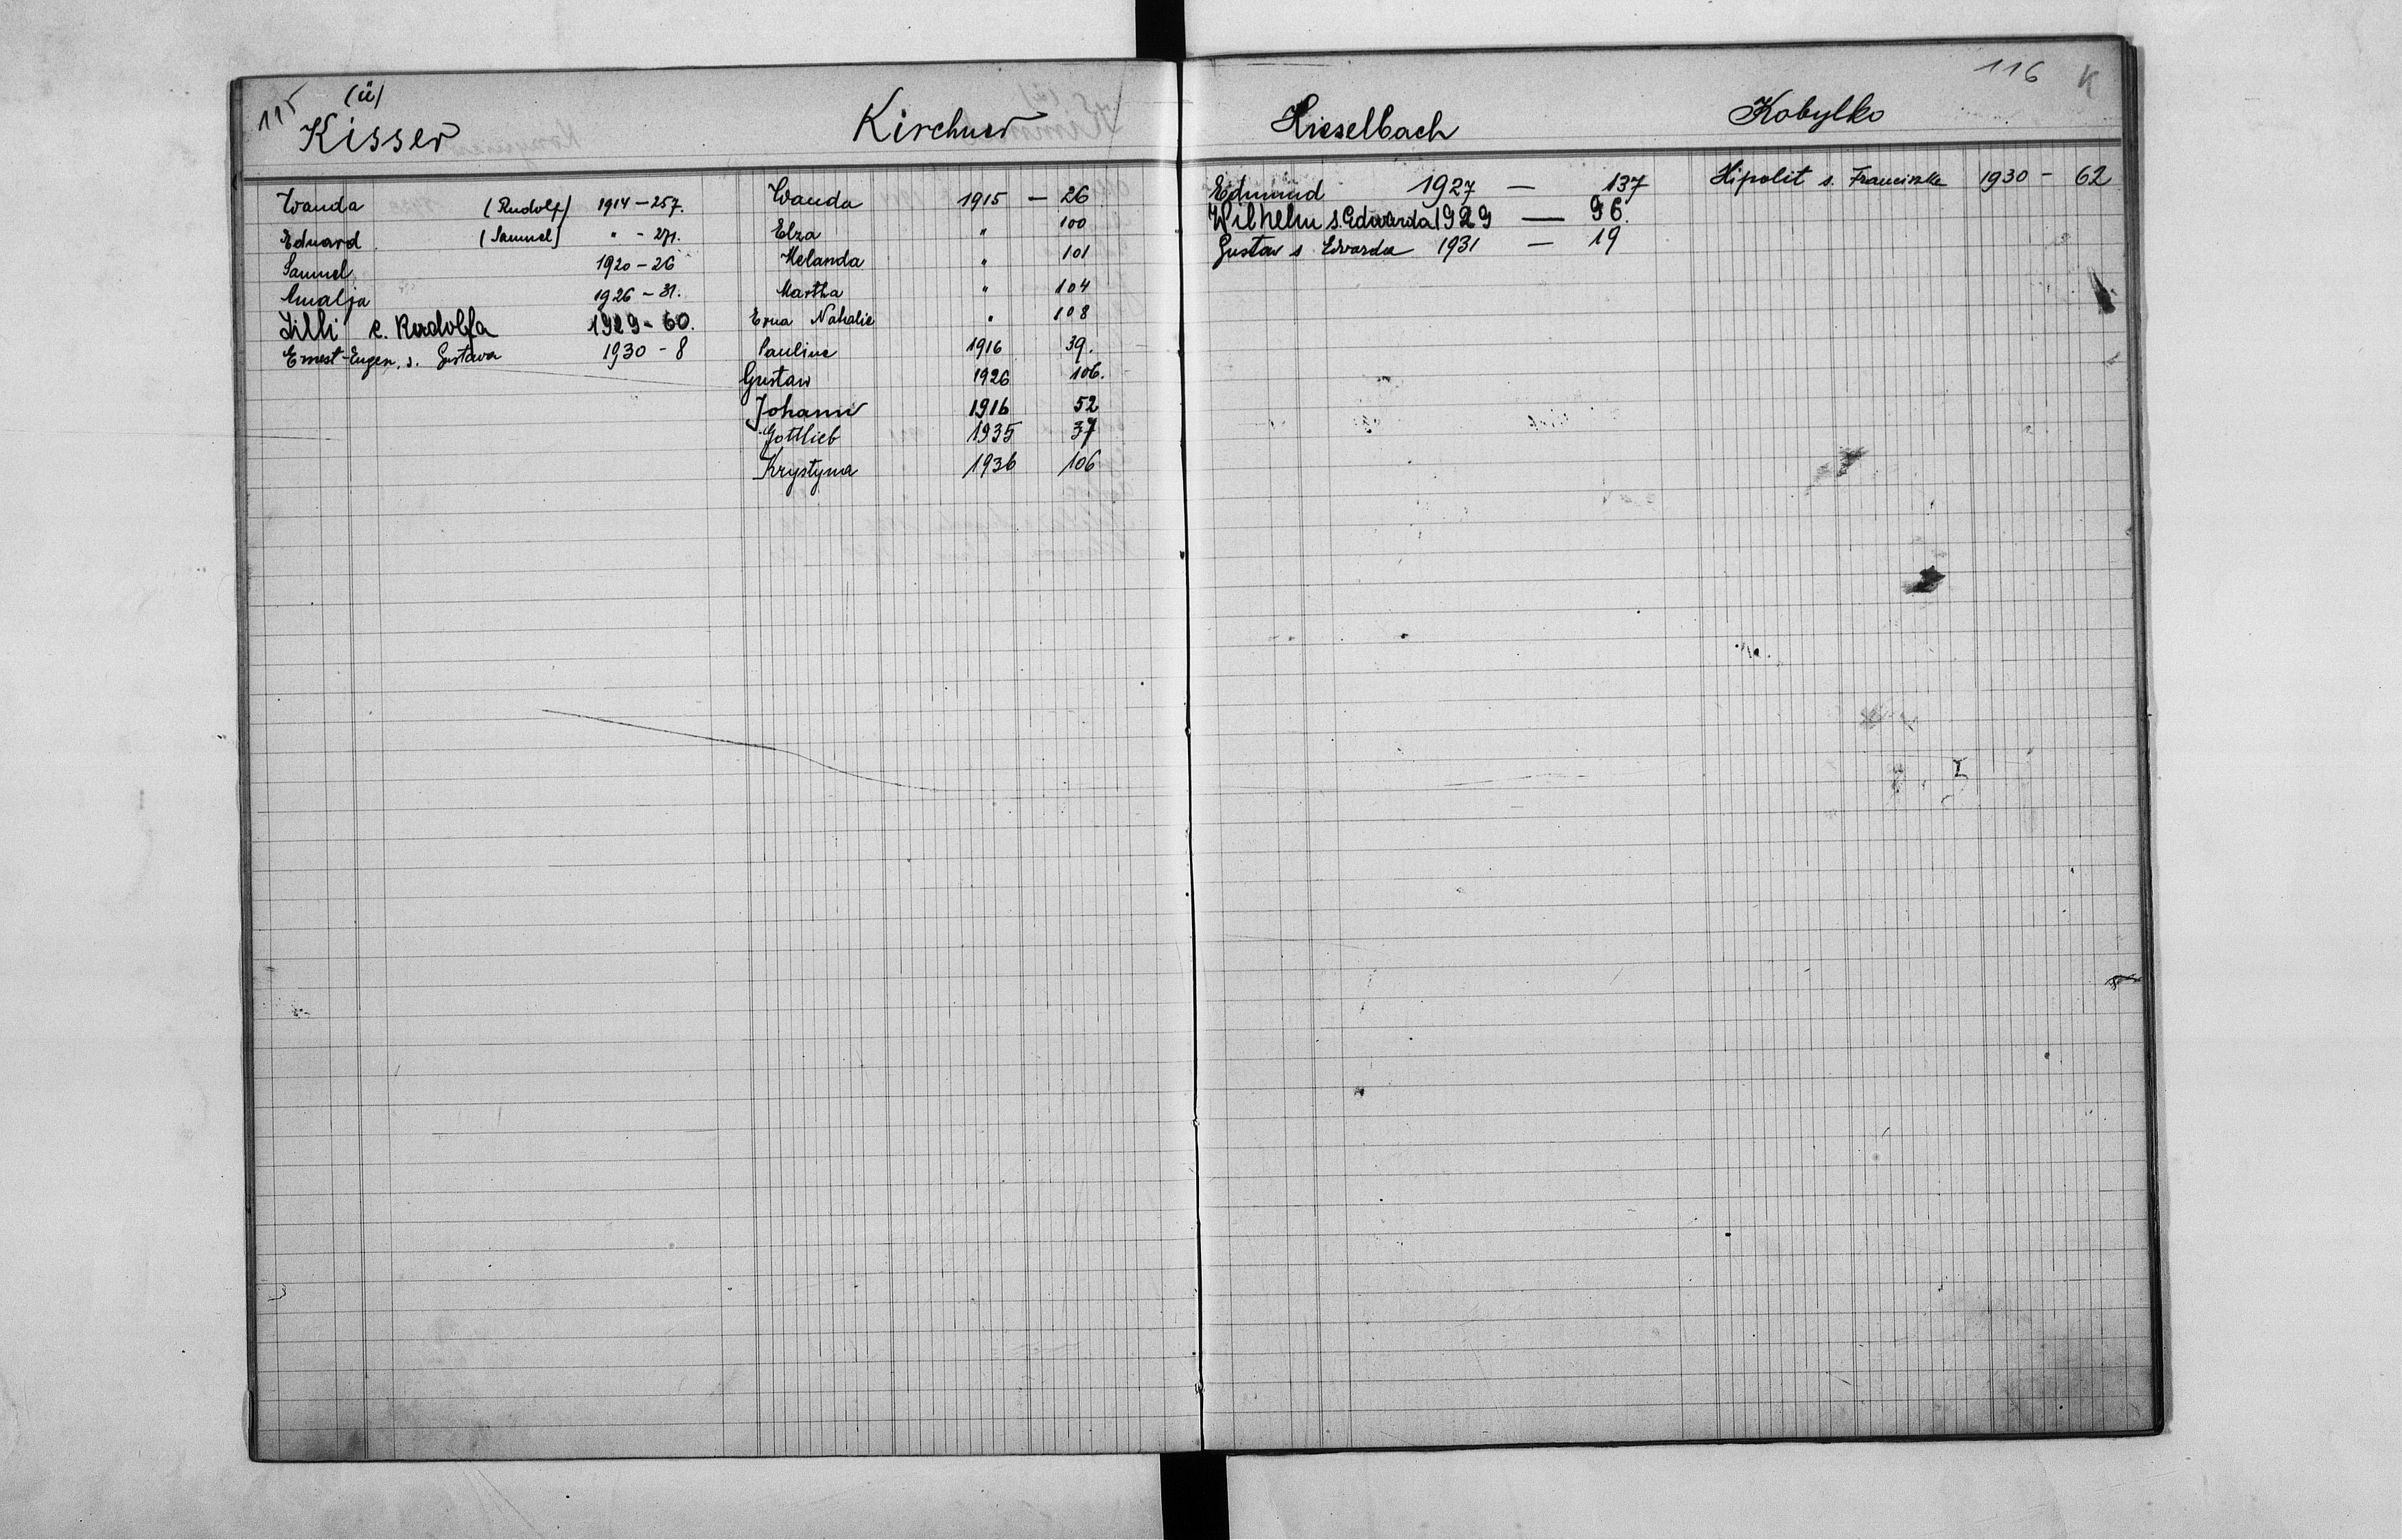 115
(ü)
Kisser
Wanda (Rudolf) 1914 - 257.
Eduard (Samuel) " - 271.
Samuel 1920 - 26
Amalja 1926 - 31.
Lilli c. Rudolfa 1929 - 60.
Ernest-Eugen, s. Gustawa 1930 - 8
Kirchner
Wanda 1915 - 26
Elza " 100
Melanda " 101
Martha " 104
Erna Nathalie " 108
Pauline 1916 39.
Gustaw 1926 106.
Johann 1916 52
Gottlieb 1935 37
Krystyna 1936 106
116 K
Kieselbach
Edmund 1927 - 137
Wilhelm s. Edwarda 1929 - 96.
Gustaw s. Edwarda 1931 - 19
Kobylko
Hipolit s. Franciszka 1930 - 62